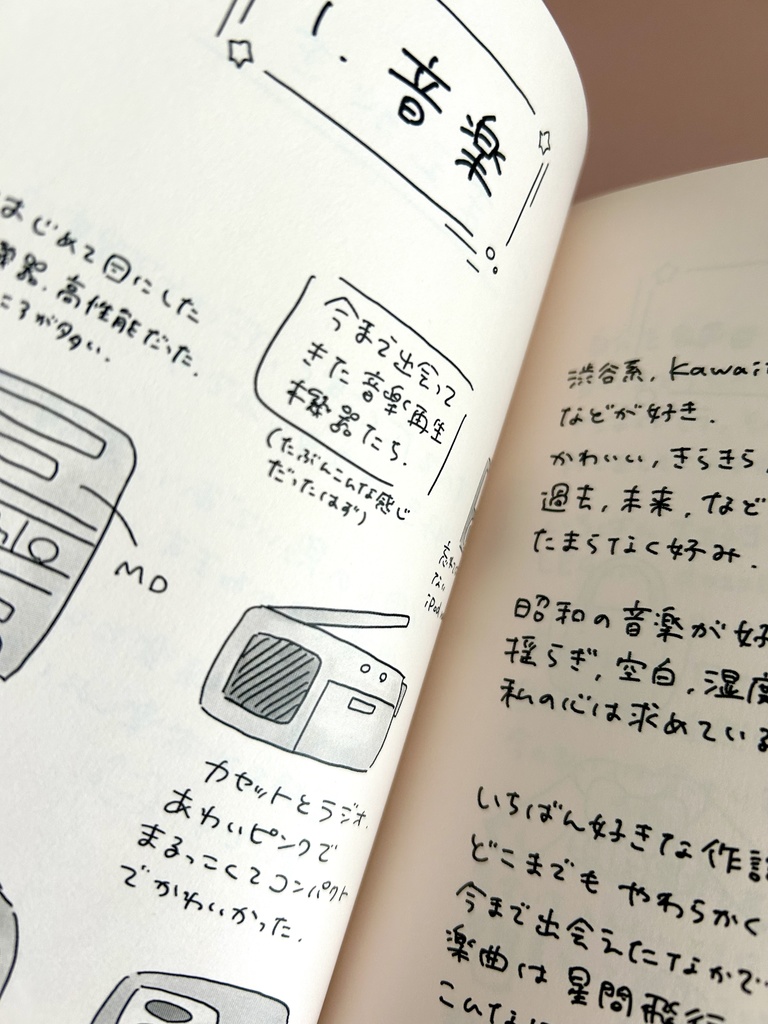 1. 音楽
はじめて目にした
器. 高性能だった.
ころが多い.
今まで出会って
きた音楽再生
機器たち.
(たぶんこんな感じ
だった(はず)
MD
カセットとラジオ.
あわいピンクで
まるっこくてコンパクト
でかわいかった.
渋谷系, Kawaii
などが好き.
かわいい, きらきら,
過去, 未来, など
たまらなく好み.
昭和の音楽が好
揺らぎ, 空白, 湿度
私の心は求めている
いちばん好きな作
どこまでも やわらかく
今まで出会えたなかで
楽曲は 星間飛行
こんな